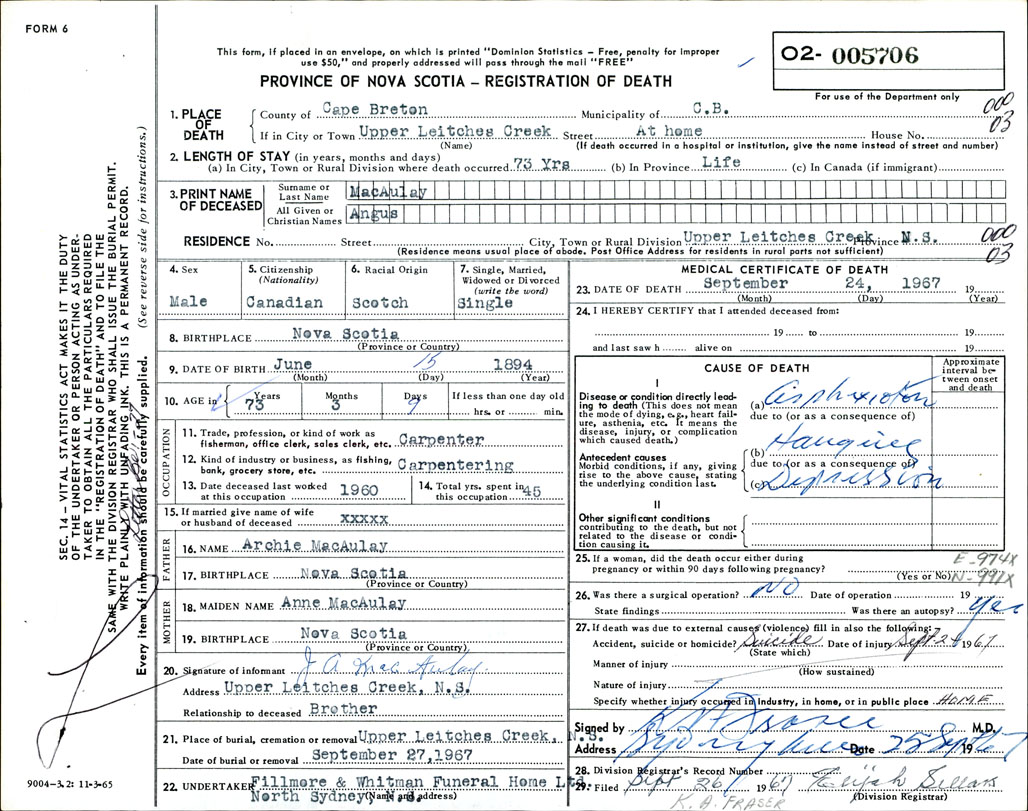 FORM 6
This form, if placed in an envelope, on which is printed "Dominion Statistics – Free, penalty for improper
use $50," and properly addressed will pass through the mail "FREE"
PROVINCE OF NOVA SCOTIA – REGISTRATION OF DEATH
02- 005706
For use of the Department only
000
03
1. PLACE OF DEATH
County of Cape Breton Municipality of C.B.
If in City or Town Upper Leitches Creek Street At home House No.
(Name) (If death occurred in a hospital or institution, give the name instead of street and number)
2. LENGTH OF STAY (in years, months and days)
(a) In City, Town or Rural Division where death occurred 73 Yrs (b) In Province Life (c) In Canada (if immigrant)
3. PRINT NAME OF DECEASED
Surname or Last Name MacAulay
All Given or Christian Names Angus
RESIDENCE No. Street City, Town or Rural Division Upper Leitches Creek Province N.S.
(Residence means usual place of abode. Post Office Address for residents in rural parts not sufficient)
000
03
4. Sex
Male
5. Citizenship
(Nationality)
Canadian
6. Racial Origin
Scotch
7. Single, Married,
Widowed or Divorced
(write the word)
Single
8. BIRTHPLACE Nova Scotia
(Province or Country)
9. DATE OF BIRTH June 15 1894
(Month) (Day) (Year)
10. AGE in Years Months Days If less than one day old
73 3 9 hrs. or min.
OCCUPATION
11. Trade, profession, or kind of work as
fisherman, office clerk, sales clerk, etc. Carpenter
12. Kind of industry or business, as fishing,
bank, grocery store, etc. Carpentering
13. Date deceased last worked
at this occupation 1960
14. Total yrs. spent in
this occupation 45
15. If married give name of wife
or husband of deceased xxxxx
FATHER
16. NAME Archie MacAulay
17. BIRTHPLACE Nova Scotia
(Province or Country)
MOTHER
18. MAIDEN NAME Anne MacAulay
19. BIRTHPLACE Nova Scotia
(Province or Country)
20. Signature of informant J A MacAulay
Address Upper Leitches Creek, N.S.
Relationship to deceased Brother
21. Place of burial, cremation or removal Upper Leitches Creek, N.S.
Date of burial or removal September 27,1967
22. UNDERTAKER Fillmore & Whitman Funeral Home Ltd
North Sydney N.S.
(Name and address)
MEDICAL CERTIFICATE OF DEATH
23. DATE OF DEATH September 24, 1967 19
(Month) (Day) (Year)
24. I HEREBY CERTIFY that I attended deceased from:
19 to 19
and last saw h alive on 19
CAUSE OF DEATH
Approximate
interval be-
tween onset
and death
I
Disease or condition directly lead-
ing to death (This does not mean
the mode of dying, e.g., heart fail-
ure, asthenia, etc. It means the
disease, injury, or complication
which caused death.)
(a) Asphyxiation
due to (or as a consequence of)
Antecedent causes
Morbid conditions, if any, giving
rise to the above cause, stating
the underlying condition last.
(b) Hanging
due to (or as a consequence of)
(c) Depression
II
Other significant conditions
contributing to the death, but not
related to the disease or condi-
tion causing it.
25. If a woman, did the death occur either during
pregnancy or within 90 days following pregnancy?
(Yes or No)
E-974X
N-991X
26. Was there a surgical operation? NO Date of operation 19
State findings Was there an autopsy? Yes
27. If death was due to external causes (violence) fill in also the following:
Accident, suicide or homicide? Suicide Date of injury Sept-24 1967
(State which)
Manner of injury
(How sustained)
Nature of injury
Specify whether injury occurred in industry, in home, or in public place HOME
Signed by M.D.
Address Sydney Mines Date 25 Sept 1967
28. Division Registrar's Record Number
29. Filed Sept 26 1967 Elijah Sellars
(Division Registrar)
K. A. FRASER
SEC. 14 – VITAL STATISTICS ACT MAKES IT THE DUTY
OF THE UNDERTAKER OR PERSON ACTING AS UNDER-
TAKER TO OBTAIN ALL THE PARTICULARS REQUIRED
IN THE "REGISTRATION OF DEATH" AND TO FILE THE
SAME WITH THE DIVISION REGISTRAR WHO SHALL ISSUE THE BURIAL PERMIT.
WRITE PLAINLY WITH UNFADING INK. THIS IS A PERMANENT RECORD.
Every item of information should be carefully supplied. (See reverse side for instructions.)
9004-3.2: 11-3-65